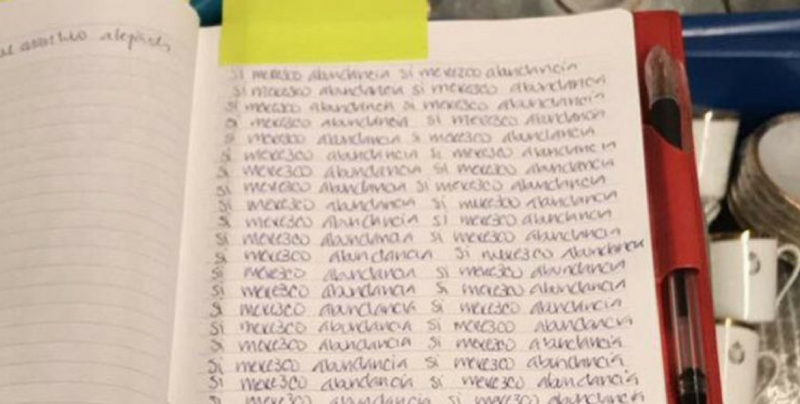 alejado
si merezco abundancia si merezco abundancia
si merezco abundancia si merezco abundancia
si merezco abundancia si merezco abundancia
si merezco abundancia si merezco abundancia
si merezco abundancia si merezco abundancia
si merezco abundancia si merezco abundancia
si merezco abundancia si merezco abundancia
si merezco abundancia si merezco abundancia
si merezco abundancia si merezco abundancia
si merezco abundancia si merezco abundancia
si merezco abundancia si merezco abundancia
si merezco abundancia si merezco abundancia
si merezco abundancia si merezco abundancia
si merezco abundancia si merezco abundancia
si merezco abundancia si merezco abundancia
si merezco abundancia si merezco abundancia
si merezco abundancia si merezco abundancia
si merezco abundancia si merezco abundancia
si merezco abundancia si merezco abundancia
si merezco abundancia si merezco abundancia